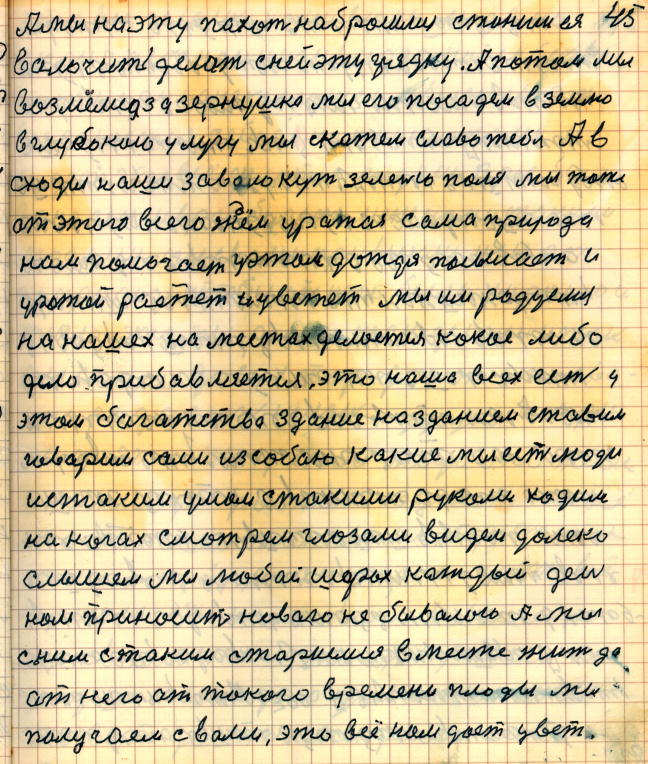 А мы на эту пахот набросимся станим ея 45
валочит делат с ней эту грядку. А потом мы
возмём да зернушко мы его посадем в землю
в глубокого улугу мы скажем слово тебя А в
сходы наши заволокут зелено поля мы тоже
от этого всего ждём уражая сама природа
нам помогает у этом дождя посылает и
урожай растет и цветет мы им радуемся
на нашех на местах делается какое либо
дело прибавляется, это наша всех ест у
этом багатства здание на зданием ставим
говарим сами из собою какие мы ест люди
и с таким умом с такими руками ходим
на ногах смотрем глозами видем далеко
слышем мы любой шорох каждый ден
нам приносит новаго не бывалого А мы
с ним с таким стараемся вместе жит да
от него от такого времени плоды мы
получаем с вами, это всё нам дает цвет.